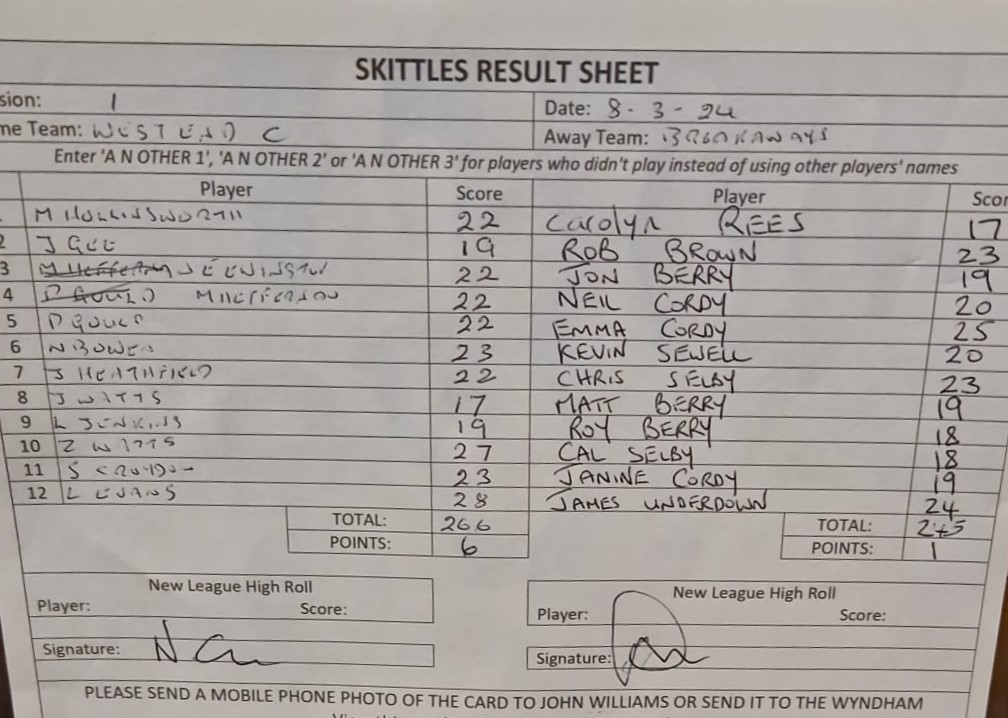 SKITTLES RESULT SHEET
sion: 1 Date: 8-3-24
me Team: WEST END C Away Team: BREAKAWAYS
Enter 'A N OTHER 1', 'A N OTHER 2' or 'A N OTHER 3' for players who didn't play instead of using other players' names
Player Score Player Scor
M HOLLINSWORTH 22 Carolyn REES 17
2 J GEE 19 ROB BROWN 23
3 22 JON BERRY 19
4 M HEFFERAN 22 NEIL CORDY 20
5 P GOULD 22 EMMA CORDY 25
6 N BOWEN 23 KEVIN SEWELL 20
7 J HEATHFIELD 22 CHRIS SELBY 23
8 J WATTS 17 MATT BERRY 19
9 L JENKINS 19 ROY BERRY 18
10 Z WATTS 27 CAL SELBY 18
11 S 23 JANINE CORDY 19
12 L EVANS 28 JAMES UNDERDOWN 24
TOTAL: 266 TOTAL: 245
POINTS: 6 POINTS: 1
New League High Roll New League High Roll
Player: Score: Player: Score:
Signature: Signature:
PLEASE SEND A MOBILE PHONE PHOTO OF THE CARD TO JOHN WILLIAMS OR SEND IT TO THE WYNDHAM